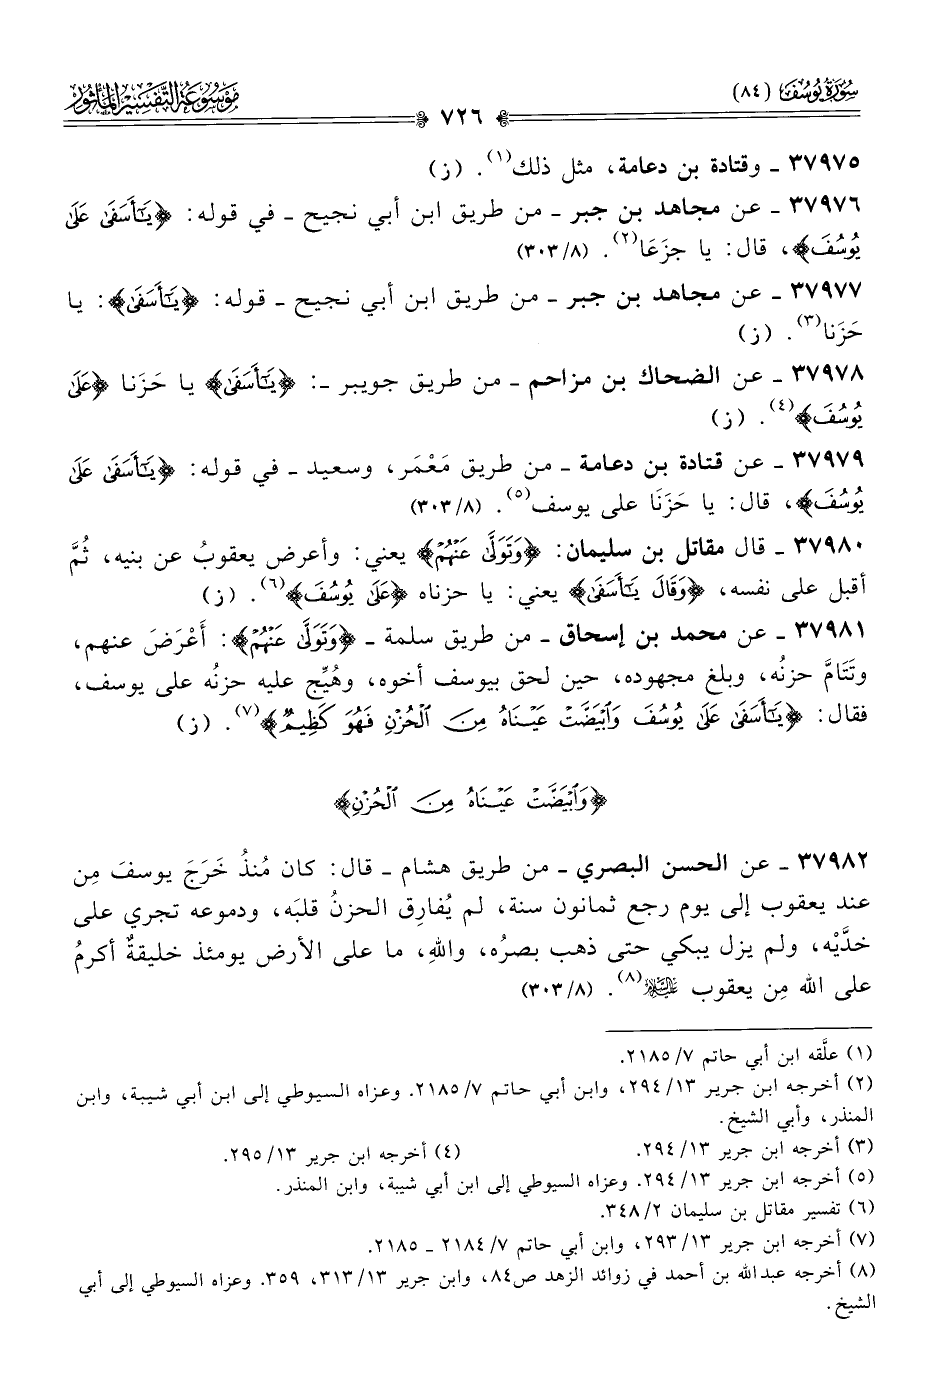 سُورَةُ يُوسُفَ (٨٤)
موسوعة التفسير المأثور
٧٢٦
٣٧٩٧٥ ـ وقتادة بن دعامة، مثل ذلك(١). (ز)
٣٧٩٧٦ ـ عن مجاهد بن جبر ـ من طريق ابن أبي نجيح ـ في قوله: ﴿يَٰٓأَسَفَىٰ عَلَىٰ
يُوسُفَ﴾، قال: يا جزَعَا(٢). (٣٠٣/٨)
٣٧٩٧٧ ـ عن مجاهد بن جبر ـ من طريق ابن أبي نجيح ـ قوله: ﴿يَٰٓأَسَفَىٰ﴾: يا
حَزَنا(٣). (ز)
٣٧٩٧٨ ـ عن الضحاك بن مزاحم ـ من طريق جويبر ـ: ﴿يَٰٓأَسَفَىٰ﴾ يا حَزَنا ﴿عَلَىٰ
يُوسُفَ﴾(٤). (ز)
٣٧٩٧٩ ـ عن قتادة بن دعامة ـ من طريق مَعْمَر، وسعيد ـ في قوله: ﴿يَٰٓأَسَفَىٰ عَلَىٰ
يُوسُفَ﴾، قال: يا حَزَنَا على يوسف(٥). (٣٠٣/٨)
٣٧٩٨٠ ـ قال مقاتل بن سليمان: ﴿وَتَوَلَّىٰ عَنْهُمْ﴾ يعني: وأعرض يعقوبُ عن بنيه، ثُمَّ
أقبل على نفسه، ﴿وَقَالَ يَٰٓأَسَفَىٰ﴾ يعني: يا حزناه ﴿عَلَىٰ يُوسُفَ﴾(٦). (ز)
٣٧٩٨١ ـ عن محمد بن إسحاق ـ من طريق سلمة ـ ﴿وَتَوَلَّىٰ عَنْهُمْ﴾: أَعْرَضَ عنهم،
وتَتَامَّ حزنُه، وبلغ مجهوده، حين لحق بيوسف أخوه، وهُيِّج عليه حزنُه على يوسف،
فقال: ﴿يَٰٓأَسَفَىٰ عَلَىٰ يُوسُفَ وَٱبْيَضَّتْ عَيْنَاهُ مِنَ ٱلْحُزْنِ فَهُوَ كَظِيمٌ﴾(٧). (ز)
﴿وَٱبْيَضَّتْ عَيْنَاهُ مِنَ ٱلْحُزْنِ﴾
٣٧٩٨٢ ـ عن الحسن البصري ـ من طريق هشام ـ قال: كان مُنذُ خَرَجَ يوسفَ مِن
عند يعقوب إلى يوم رجع ثمانون سنة، لم يُفارِق الحزنُ قلبَه، ودموعه تجري على
خدَّيْه، ولم يزل يبكي حتى ذهب بصرُه، واللهِ، ما على الأرض يومئذ خليقةٌ أكرمُ
على الله مِن يعقوب عليه السلام(٨). (٣٠٣/٨)
(١) علَّقه ابن أبي حاتم ٧/ ٢١٨٥.
(٢) أخرجه ابن جرير ١٣/ ٢٩٤، وابن أبي حاتم ٧/ ٢١٨٥. وعزاه السيوطي إلى ابن أبي شيبة، وابن
المنذر، وأبي الشيخ.
(٣) أخرجه ابن جرير ١٣/ ٢٩٤. (٤) أخرجه ابن جرير ١٣/ ٢٩٥.
(٥) أخرجه ابن جرير ١٣/ ٢٩٤. وعزاه السيوطي إلى ابن أبي شيبة، وابن المنذر.
(٦) تفسير مقاتل بن سليمان ٢/ ٣٤٨.
(٧) أخرجه ابن جرير ١٣/ ٢٩٣، وابن أبي حاتم ٧/ ٢١٨٤ ـ ٢١٨٥.
(٨) أخرجه عبدالله بن أحمد في زوائد الزهد ص٨٤، وابن جرير ١٣/ ٣١٣، ٣٥٩. وعزاه السيوطي إلى أبي
الشيخ.